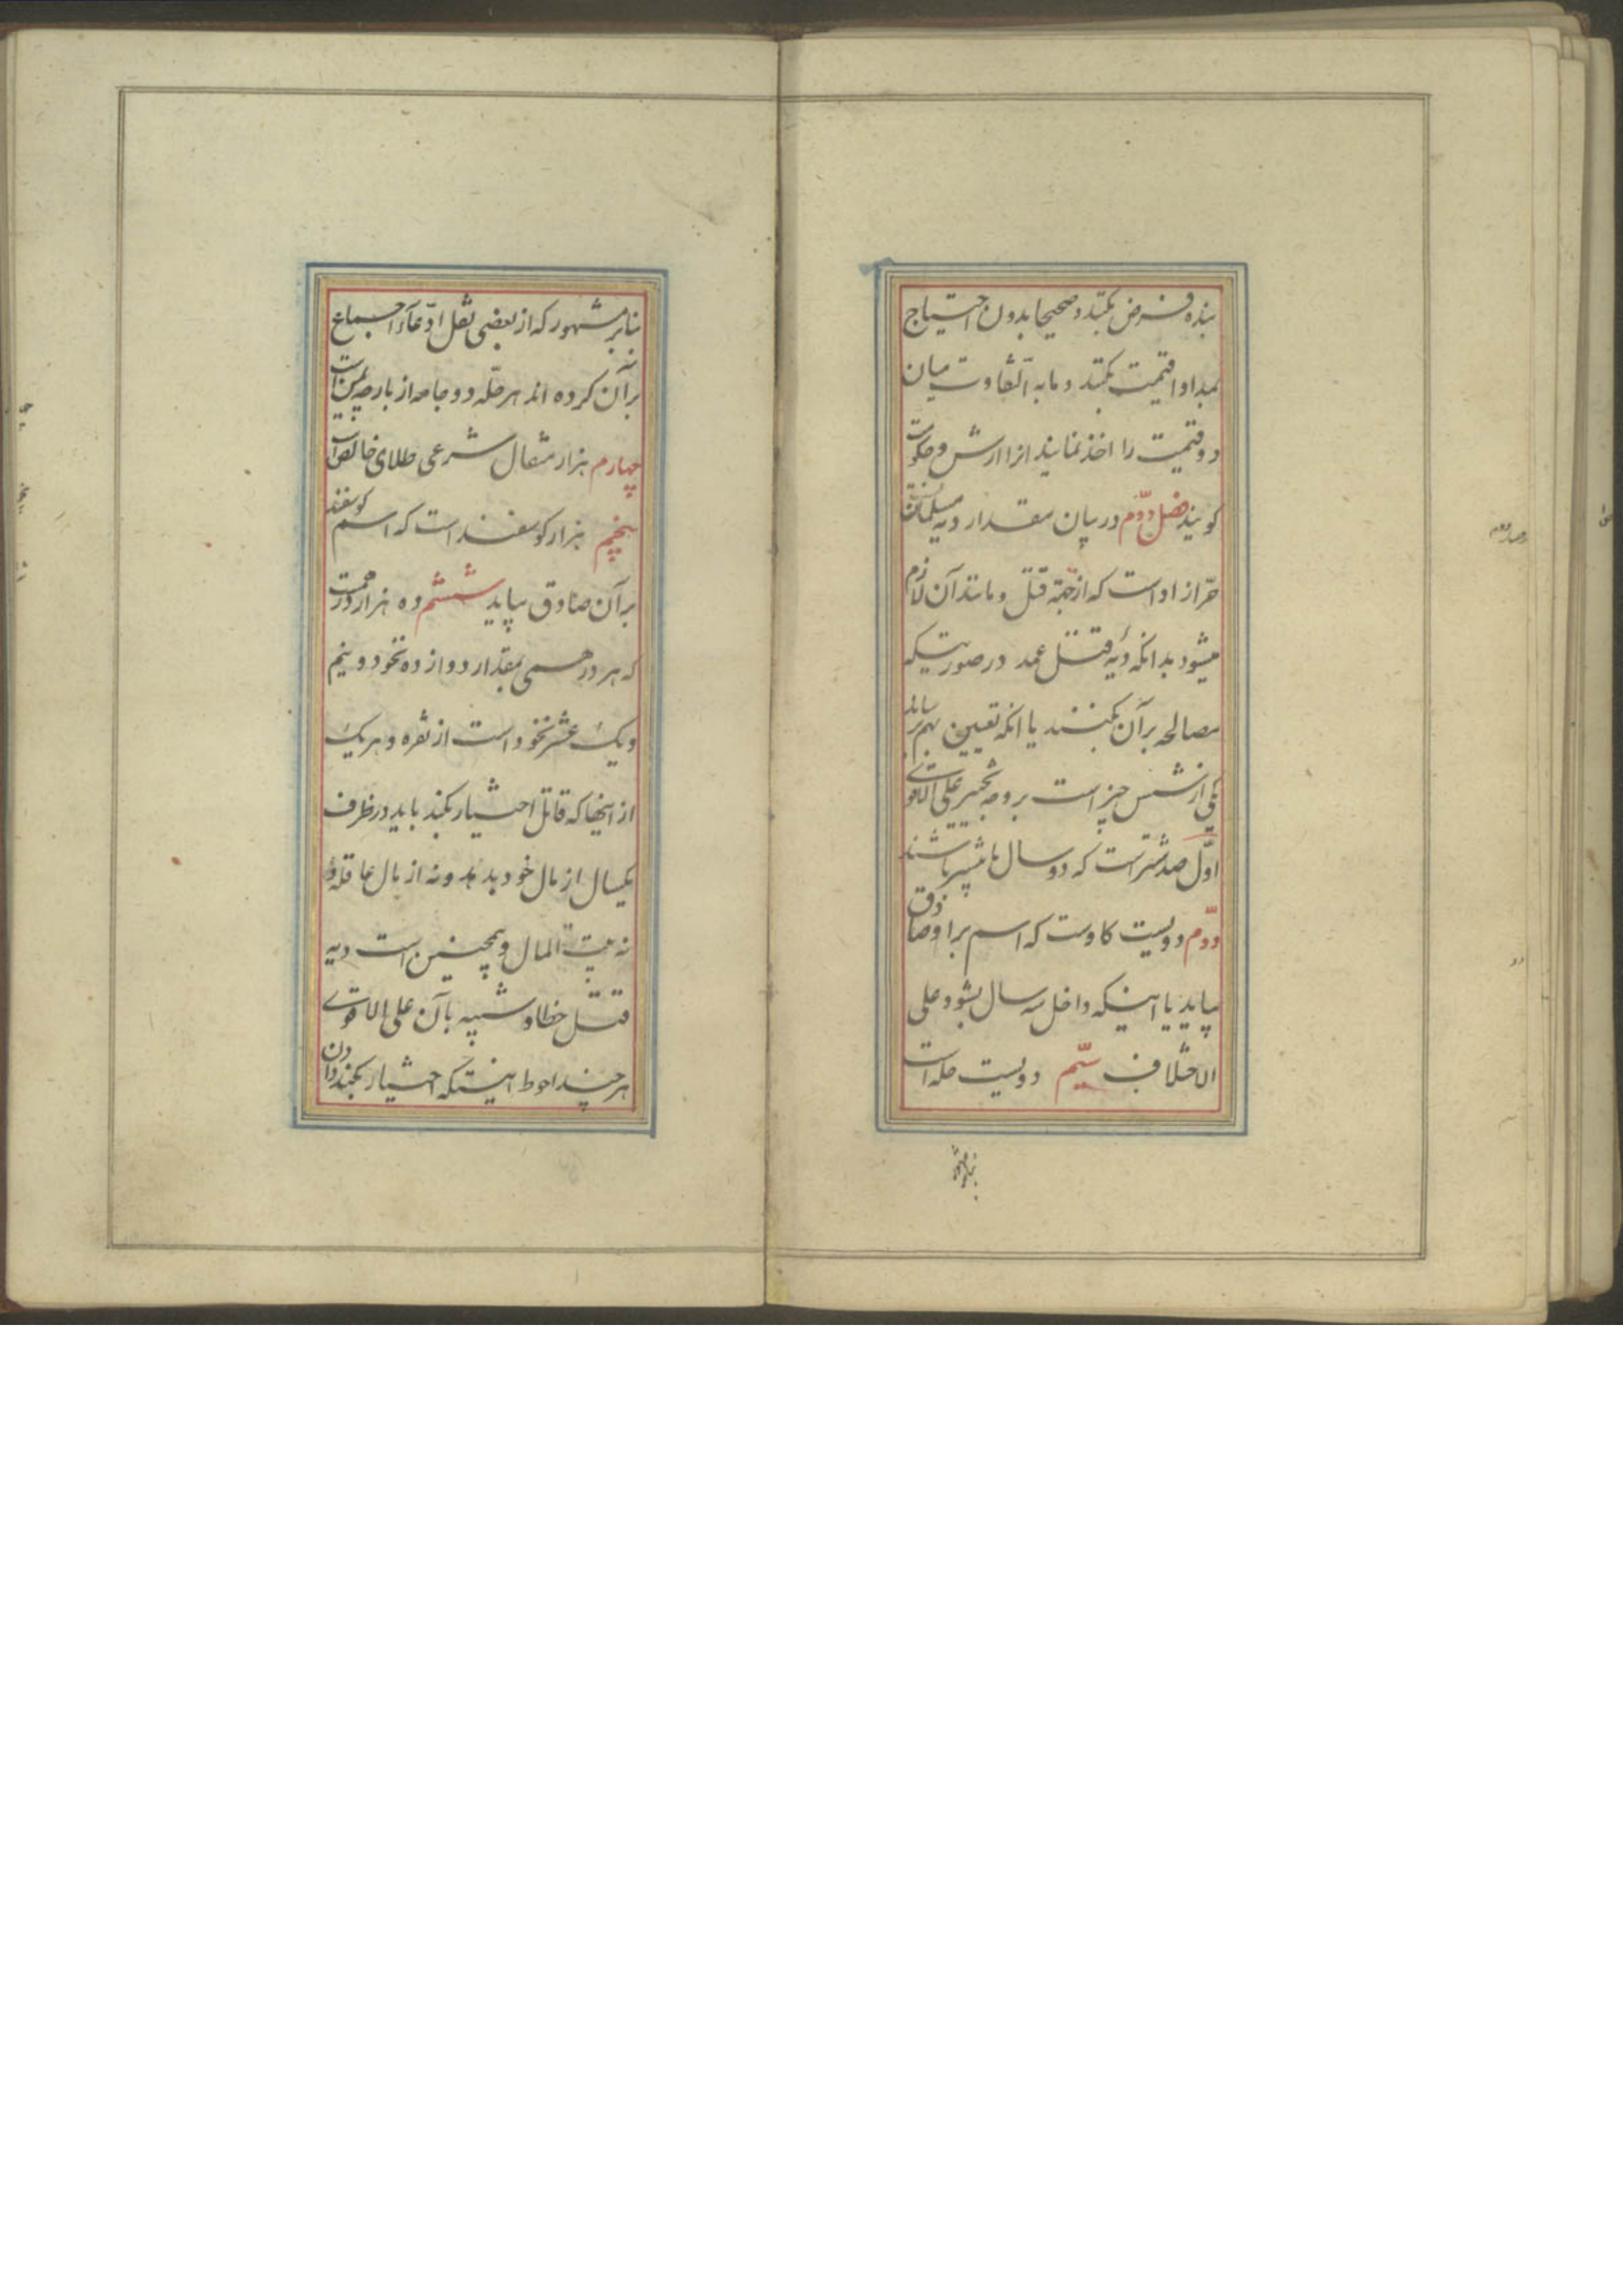 بنده فرض بکنند و صحیحا بدون احتیاج
بمداوا قیمت بکنند و ما به التفاوت میان
دو قیمت را اخذ نمایند انرا ارش و حکومت
کویند فصل دوّم در بیان مقدار دیه مسلمان
حرّ ازاد است که از جهة قتل و مانند آن لازم
میشود بدانکه دیهٔ قتل عمد در صورتیکه
مصالحه بر آن بکنند یا انکه تعیین بهم رساند
یکی از شش چیز است بر وجه تخییر علی الاقوی
اوّل صد شتر است که دو سال تا بیشتر باشند
دوّم دویست کاوست که اسم بر او صادق
بیاید یا اینکه داخل سه سال بشود علی
الاختلاف سیّم دویست حله است
بنابر مشهور
بنابر مشهور که از بعضی نقل ادّعاء اجماع
بر آن کرده اند هر حلّه دو جامه از پارچه یمن است
چهارم هزار مثقال شرعی طلای خالص است
پنجم هزار کوسفند است که اسم کوسفند
بر آن صادق بیاید ششم ده هزار درهمست
که هر درهمی بمقدار دوازده نخود و نیم
و یک عشر نخود است از نقره و هر یک
از اینها که قاتل اختیار بکند باید در ظرف
یکسال از مال خود بدهد و نه از مال عاقله و
نه بیت المال و همچنین است دیه
قتل خطا و شبیه بآن علی الاقوی
هر چند احوط اینستکه اختیار بکند دادن